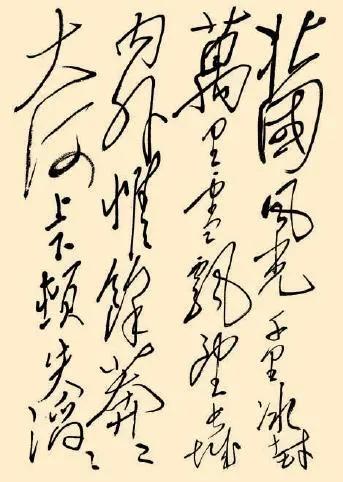 北國風光千里冰封
萬里雪飄望長城
內外惟餘莽〻
大河上下頓失滔〻